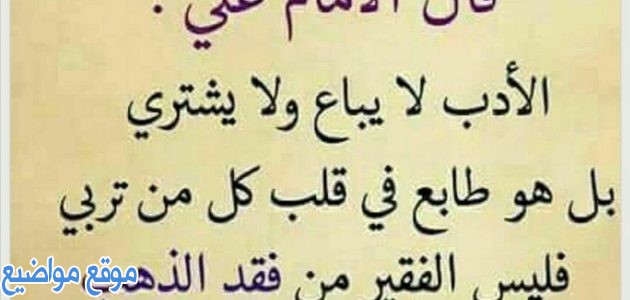 قال الامام علي :
الأدب لا يباع ولا يشتري
بل هو طابع في قلب كل من تربي
فليس الفقير من فقد الذهب
موقع مواضيع